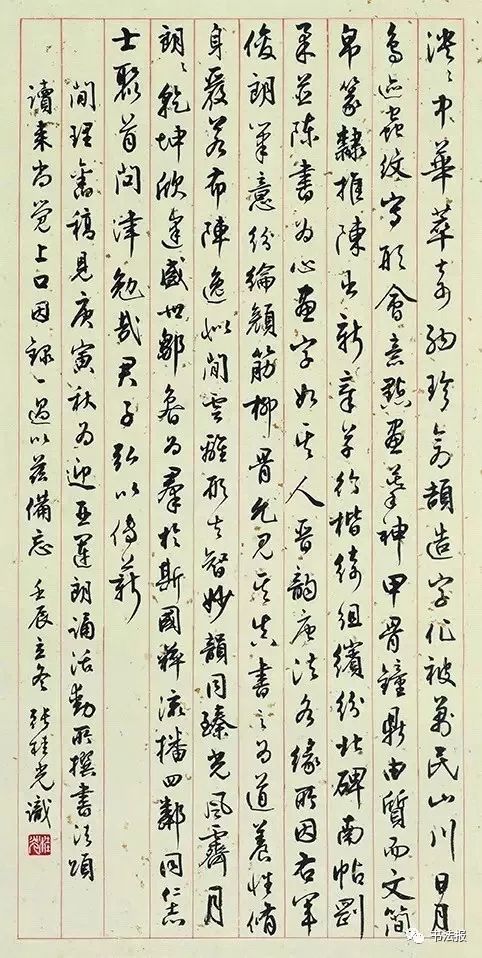 泱々中華萃奇珍倉頡造字化被萬民山川日月
鳥迹蟲紋寫形會意點畫神甲骨鐘鼎由質而文簡
帛篆隸推陳出新章草行楷綺組繽紛北碑南帖剛
柔並陳書為心畫字如其人晉韻唐法各緣所因右軍
俊朗筆意紛綸顏筋柳骨允見其真書之為道養性脩
身嚴若布陣逸似閒雲離形去智妙韻同臻光風霽月
朗々乾坤欣逢盛世鄒魯為羣於斯國粹流播四鄰同仁志
士聚首問津勉哉君子弘以傳薪
閒理舊稿見庚寅秋為迎亞運朗誦活動所撰書法頌
讀來尚覺上口因錄一過以茲備忘 壬辰立冬 張桂光識
书法报